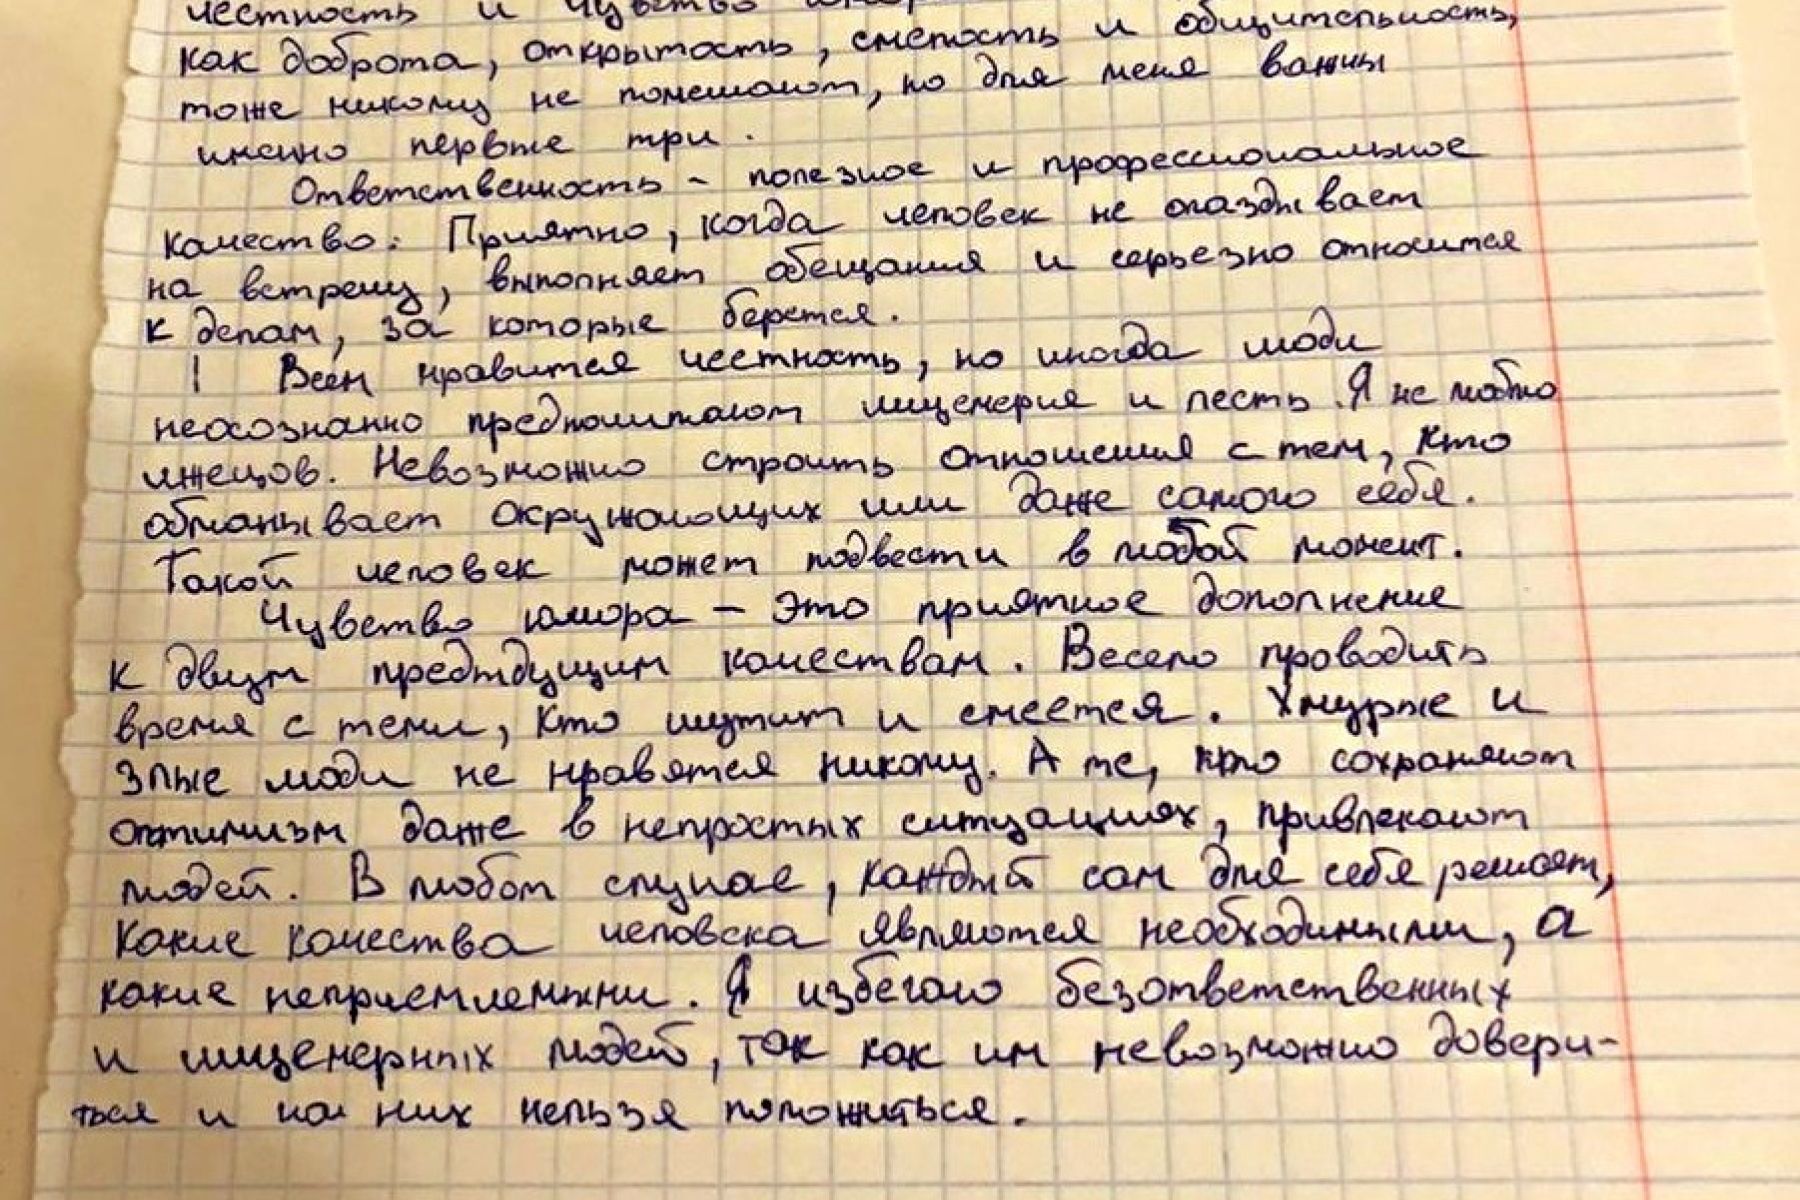 честность и чувство
как доброта, открытость, смелость и общительность,
тоже никому не помешают, но для меня важны
именно первые три.
Ответственность - полезное и профессиональное
качество. Приятно, когда человек не опаздывает
на встречу, выполняет обещания и серьезно относится
к делам, за которые берется.
Всем нравится честность, но иногда люди
неосознанно предпочитают лицемерие и лесть. Я не люблю
лжецов. Невозможно строить отношения с тем, кто
обманывает окружающих или даже самого себя.
Такой человек может подвести в любой момент.
Чувство юмора - это приятное дополнение
к двум предыдущим качествам. Весело проводить
время с теми, кто шутит и смеется. Хмурые и
злые люди не нравятся никому. А те, кто сохраняют
оптимизм даже в непростых ситуациях, привлекают
людей. В любом случае, каждый сам для себя решает,
какие качества человека являются необходимыми, а
какие неприемлемыми. Я избегаю безответственных
и лицемерных людей, так как им невозможно довери-
ться и на них нельзя положиться.